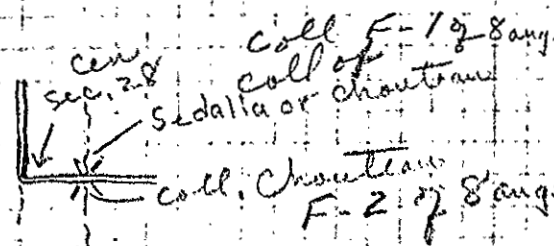 coll F-1 of 8 aug.
coll of
cen
sec. 28
Sedalia or Chouteau
coll. Chouteau
F-2 of 8 aug.